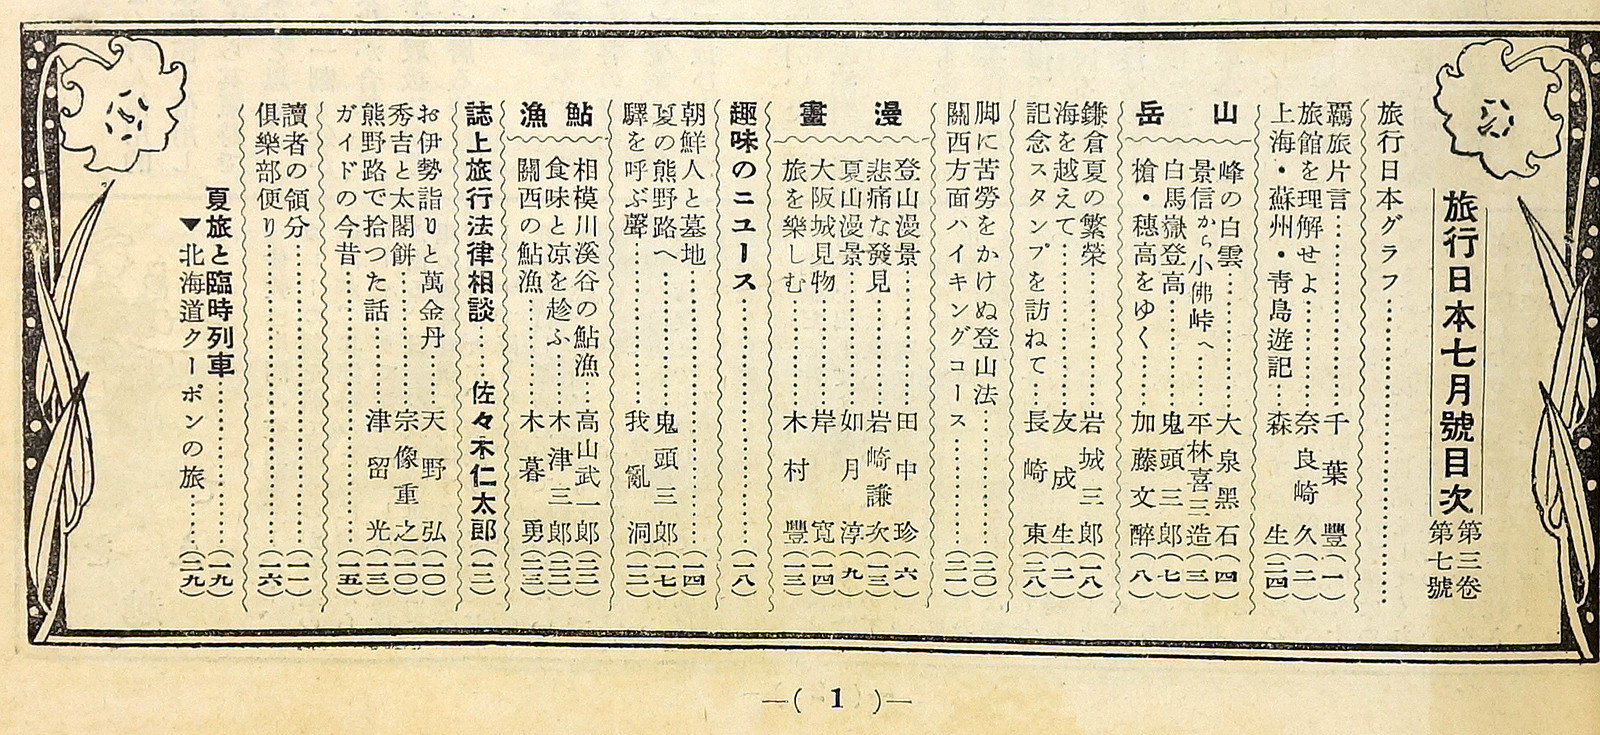 旅行日本七月號目次
第三卷
第七號
旅行日本グラフ
覊旅片言 千葉豐(一)
旅館を理解せよ 奈良崎久(二)
上海・蘇州・青島遊記 森生(二四)
山岳
峰の白雲 大泉黑石(四)
景信から小佛峠へ 平林喜三造(三)
白馬嶽登高 鬼頭三郎(七)
槍・穗高をゆく 加藤文醉(八)
鎌倉夏の繁榮 岩城三郎(一八)
海を越えて 友成生(二一)
記念スタンプを訪ねて 長崎東(二八)
脚に苦勞をかけぬ登山法(二〇)
關西方面ハイキングコース(二一)
漫畫
登山漫景 田中珍(六)
悲痛な發見 岩崎謙次(一三)
夏山漫景 如月淳(九)
大阪城見物 岸寬(一四)
旅を樂しむ 木村豐(一三)
趣味のニュース(一八)
朝鮮人と墓地(一四)
夏の熊野路へ 鬼頭三郎(一七)
驛を呼ぶ聲 我亂洞(一二)
鮎漁
相模川溪谷の鮎漁 高山武一郎(二二)
食味と凉を趁ふ 木津三郎(二二)
關西の鮎漁 木暮勇(二三)
誌上旅行法律相談 佐々木仁太郎(一二)
お伊勢詣りと萬金丹 天野弘(一〇)
秀吉と太閤餅 宗像重之(一〇)
熊野路で拾つた話 津留光(一三)
ガイドの今昔(一五)
讀者の領分(一一)
俱樂部便り(一六)
夏旅と臨時列車(一九)
▼北海道クーポンの旅(二九)
—( 1 )—